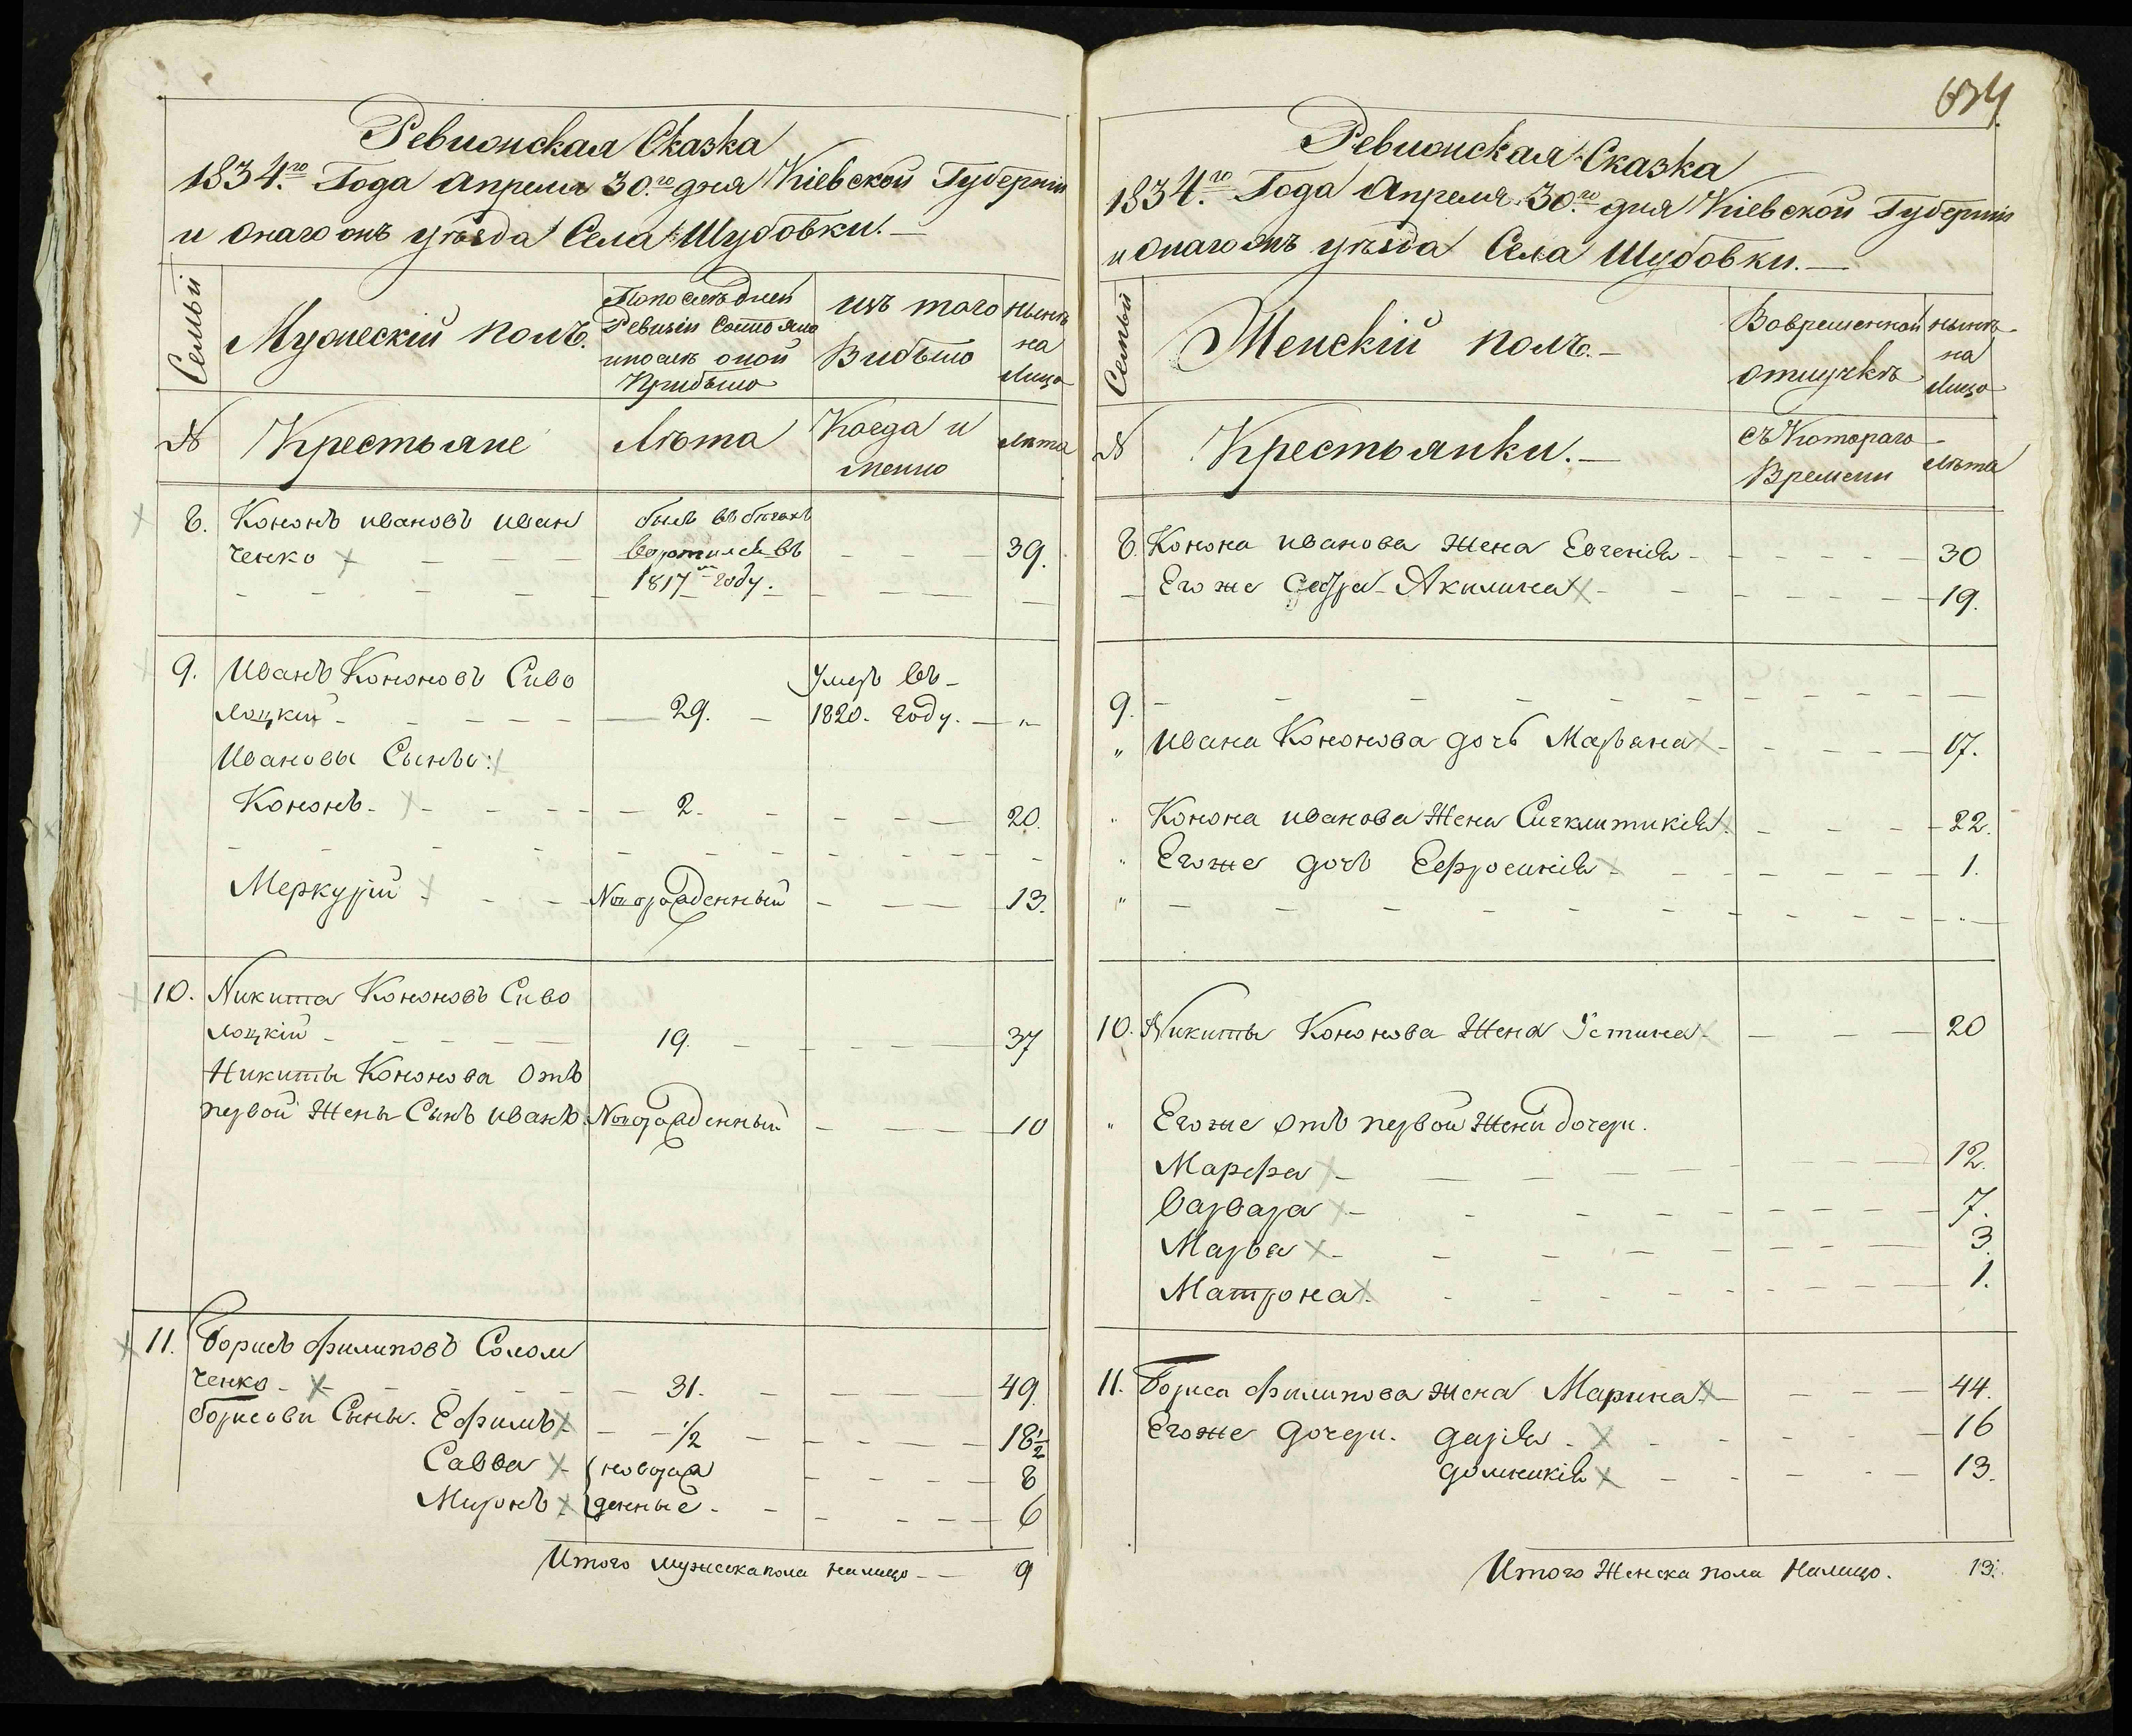 Ревизская Сказка
1834.го Года Апреля 30.го дня Кіевской Губерніи
и Онаго онъ уѣзда Села Шубовки.—
Семьи
Мужескій полъ.
По последней
Ревизіи Состояло
и после оной
Прибыло
изъ того
Выбыло
нынѣ
на
Лицо
№
Крестьяне
Лѣта
Когда и
менно
лѣта
8. Кононъ ивановъ иван
ченко
былъ въ бѣгахъ
воротился въ
1817м году.
39.
9. Иванъ Кононовъ Сиво
лоцкий
29.
Умеръ въ
1820. году.
"
Ивановы Сыновья:
Кононъ 2. 20.
Меркурій Новорожденный 13.
10. Никита Кононовъ Сиво
лоцкій 19. 37
Никиты Кононова Отъ
первой Жены Сынъ иванъ. Новорожденный 10
11. Борисъ Филиповъ Солом
ченко 31. 49
Борисови Сыны. Ефимъ 1/2 18 1/2
Савва новорож 8
Миронъ денные 6
Итого мужеска пола налицо 9
634
Ревизская Сказка
1834.го Года Апреля 30.го дня Кіевской Губерніи
и Онаго онъ уѣзда Села Шубовки.—
Семьи
Женскій полъ.—
Во временной
отлучкѣ
нынѣ
на
Лицо
№
Крестьянки.—
съ Котораго
Времени
лѣта
8. Конона иванова Жена Евгенія 30
Его же Сестра Акилина 19.
9.
" Ивана Кононова дочь Марьяна 17.
" Конона иванова Жена Сигклитикія 22.
" Его же дочь Ефросинія 1.
" "
10. Никиты Кононова Жена Устина 20
" Его же Отъ первой Жени дочери.
Марфа 12.
Варвара 7.
Марья 3.
Матрона 1.
11. Бориса Филипова жена Марина 44.
Его же Дочери. Дарья 16
Домникія 13.
Итого Женска пола Налицо. 13.